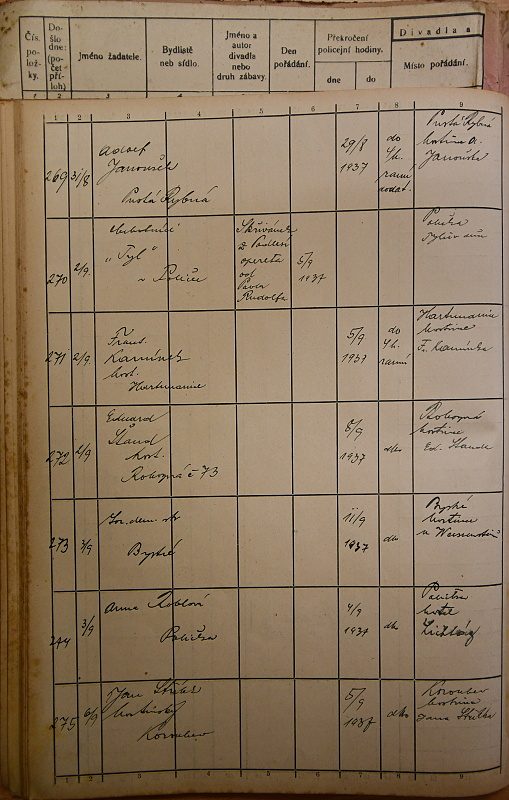 Čís. po- ložky.
Do- šlo dne: (po- čet pří- loh)
Jméno žadatele.
Bydliště neb sídlo.
Jméno a autor divadla nebo druh zábavy.
Den pořádání.
Překročení policejní hodiny.
dne
do
Divadla a
Místo pořádání.
1 2 3 4 5 6 7 8 9
269 31/8 Adolf Janoušek Pustá Rybná 29/8 1937 do 4h. ranní dodat. Pustá Rybná hostinec A. Janouška
270 2/9 "Tyl" v Poličce Skřivánek z Podlesí opereta od Pavla Rudolfa 5/9 1937 Polička Tylův dům
271 2/9 Frant. Kamínek host. Hartmanice 5/9 1937 do 4h. ranní Hartmanice hostinec F. Kamínka
272 2/9 Eduard Štaud host. Rohozná č 73 1937 dto Rohozná hostinec Ed. Štauda
273 3/9 Soc. dem. str Bystré 11/9 1937 dto Bystré hostinec u
274 3/9 Anna Polička 4/9 1937 dto Polička hotel
275 6/9 Jan Korouhev 5/9 1937 dto Korouhev hostinec Jana
1 2 3 4 5 6 7 8 9